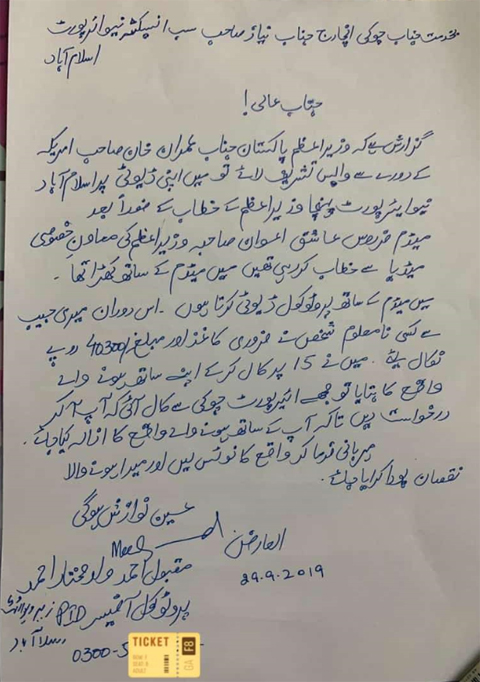 بخدمت جناب چوکی انچارج جناب نیاز صاحب سب انسپکٹر نیو ائرپورٹ
اسلام آباد
جناب عالی!
گزارش ہے کہ وزیراعظم پاکستان جناب عمران خان صاحب امریکہ
کے دورے سے واپس تشریف لائے تو میں اپنی ڈیوٹی پر اسلام آباد
نیو ائیرپورٹ پہنچا وزیراعظم کے خطاب کے فوراً بعد
میڈم فردوس عاشق اعوان صاحبہ وزیراعظم کی معاون خصوصی
میڈیا سے خطاب کر رہی تھیں میں میڈم کے ساتھ کھڑا تھا۔
میں میڈم کے ساتھ پروٹوکول ڈیوٹی کرتا ہوں۔ اس دوران میری جیب
سے کسی نامعلوم شخص نے ضروری کاغذ اور مبلغ 40300/ روپے
نکال لیے۔ میں نے 15 پر کال کر کے اپنے ساتھ ہونے والے
واقع کا بتایا تو مجھے ائیرپورٹ چوکی سے کال آئی کہ آپ آ کر
درخواست دیں تاکہ آپ کے ساتھ ہونے والے واقع کا ازالہ کیا جائے۔
مہربانی فرما کر واقع کا نوٹس لیں اور میرا ہونے والا
نقصان پورا کرایا جائے۔
عین نوازش ہوگی
العارض
29.9.2019
مقبول احمد ولد مختار احمد
پروٹوکول آفیسر PID زیرو پوائنٹ
اسلام آباد
0300-5
TICKET
GA
F8